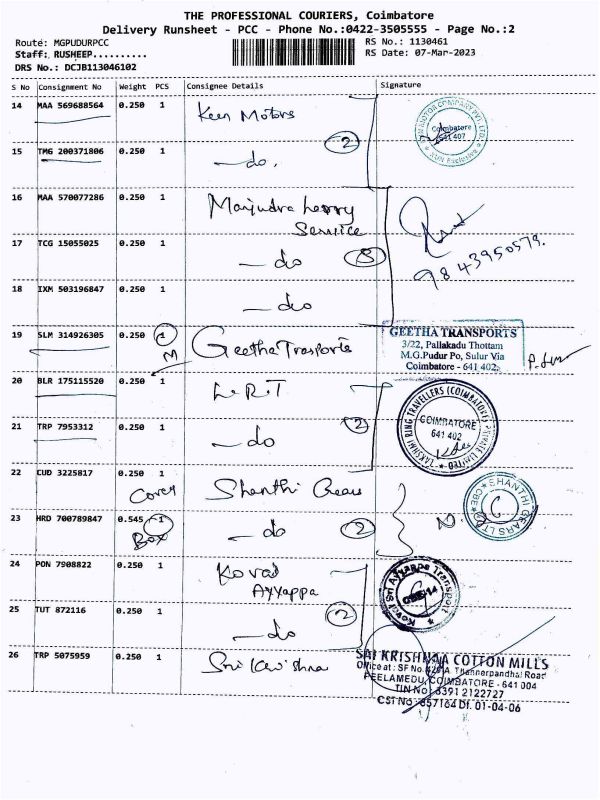 THE PROFESSIONAL COURIERS, Coimbatore
Delivery Runsheet - PCC - Phone No.:0422-3505555 - Page No.:2
Route: MGPUDURPCC
Staff: RUSHEEP..........
DRS No.: DCJB113046102
RS No.: 1130461
RS Date: 07-Mar-2023
S No Consignment No Weight PCS Consignee Details Signature
14 MAA 569688564 0.250 1 Keen Motors
COIMBATORE 641 407
SUN Exclusive
15 TMG 200371806 0.250 1 —do. 2
16 MAA 570077286 0.250 1
Service
17 TCG 15055025 0.250 1 —do 3
9843950579.
18 IXM 503196847 0.250 1 —do
19 SLM 314926305 0.250 1 Geetha Trasports
M
GEETHA TRANSPORTS
3/22, Pallakadu Thottam
M.G.Pudur Po, Sulur Via
Coimbatore - 641 402.
20 BLR 175115520 0.250 1 L.R.T
LAKSHMI RING TRAVELLERS (COIMBATORE) PRIVATE LIMITED
COIMBATORE
641 402
21 TRP 7953312 0.250 1 —do 2
22 CUD 3225817 0.250 1 Shanthi Gears
Cover
SHANTHI GEARS LTD CBE
23 HRD 700789847 0.545 1 —do 2
Box
24 PON 7908822 0.250 1 Kovai
Ayyappa
Kovai Sri Ayyappa Transport
25 TUT 872116 0.250 1 —do 2
26 TRP 5075959 0.250 1 Sri Krishna
SAI KRISHNAA COTTON MILLS
Office at : SF No. Thannerpandhal Road
PEELAMEDU, COIMBATORE - 641 004
TIN No : 3391 2122727
CST No : 857164 Dt. 01-04-06